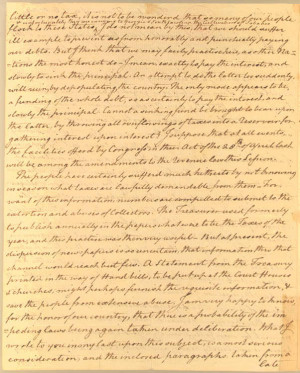 little or no lad, it is not to be wondered that so many of our people
flock to these States. I do not mean by this, that we should suffer
ill example to prevent us from honorably and punctually paying
our debts. But I think that we may fairly practice here, as other Na-
tions the most honest do — I mean, exactly to pay the interest, and
slowly to sink the principal. An attempt to do the latter too suddenly
will ruin by depopulating the country. The only mode appears to be,
a funding of the whole debt, so as certainly to pay the interest, and
slowly the principal. Cannot a sinking fund be brought to bear upon
the latter, by throwing all surplusages of taxes into a Reservoir for
gathering interest upon interest? I suppose that at all events,
the facilities offered by Congress in their Act of the 28th of April last
will be among the amendments to the revenue law this Session.
The people have certainly suffered much hitherto by not knowing
in season what taxes are lawfully demandable from them — For
want of this information numbers are compelled to submit to the
exactions and abuses of Collectors. The Treasurer used formerly
to publish annually in the papers what were to be the Taxes of the
year, and this practice was then very useful. But at present, The
dispersion of newspapers is so uncertain that information thro that
channel would reach but few. A Statement from the Treasury
printed in the way of Hand bills, to be put up at the Court Houses
& churches, might perhaps furnish the requisite information, &
save the people from extensive abuse. I am very happy to know,
for the honor of our country, that there is a probability of the im-
peding laws being again taken under deliberation. What I
wrote to you many last upon this subject, is a most serious
consideration and the inclosed paragraphs taken from a
late